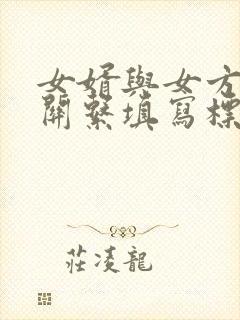 女婿與女方
關繫填寫標
莊凌龍